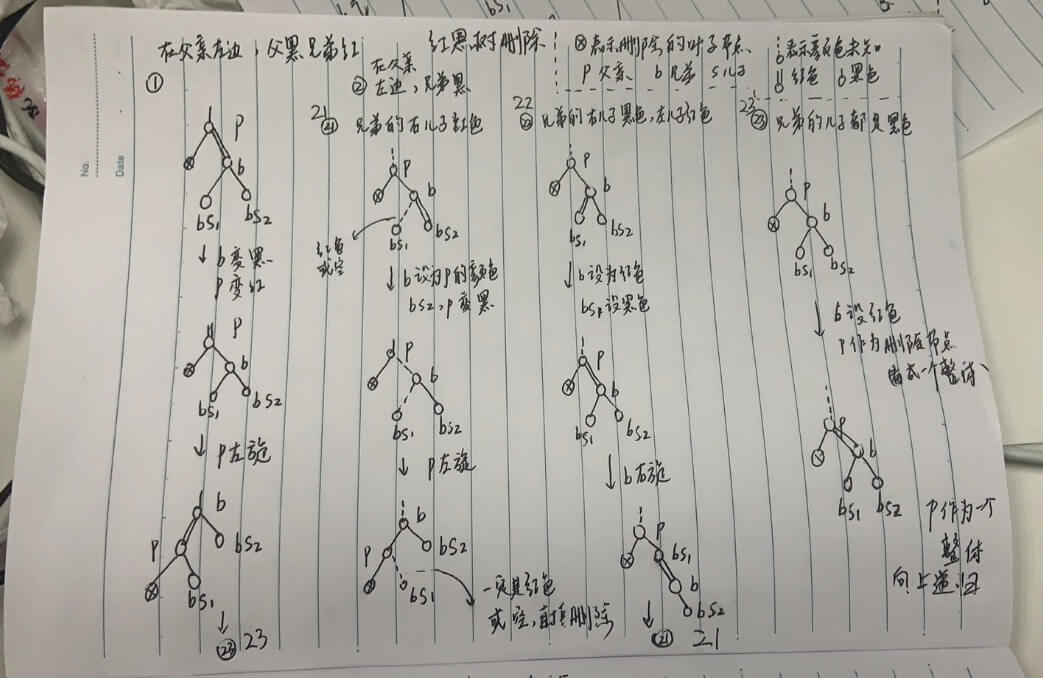 在父亲左边，父黑兄弟红
红黑树删除
⊗表示删除的叶子节点
P 父亲 b 兄弟 S 儿子
表示颜色未知
红色 黑色
No.
Date
①
② 在父亲
左边，兄弟黑
21 ㉑ 兄弟的右儿子红色
22 ㉒ 兄弟的右儿子黑色，左儿子红色
23 ㉓ 兄弟的儿子都是黑色
P
b
bS1 bS2
↓ b变黑
P变红
P
b
bS1 bS2
↓ P左旋
b
P bS2
bS1
↓
㉓ 23
P
b
bS1 bS2
红色
或空
↓ b设为P的颜色
bS2，P变黑
P
b
bS1 bS2
↓ P左旋
b
P bS2
bS1
一定是红色
或空，直接删除
P
b
bS1 bS2
↓ b设为红色
bS1设黑色
P
b
bS1 bS2
↓ b右旋
P
bS1
b
bS2
↓ ㉑ 21
P
b
bS1 bS2
↓ b设红色
P作为删除节点
看成一个整体
P
b
bS1 bS2
P作为一个
整体
向上递归